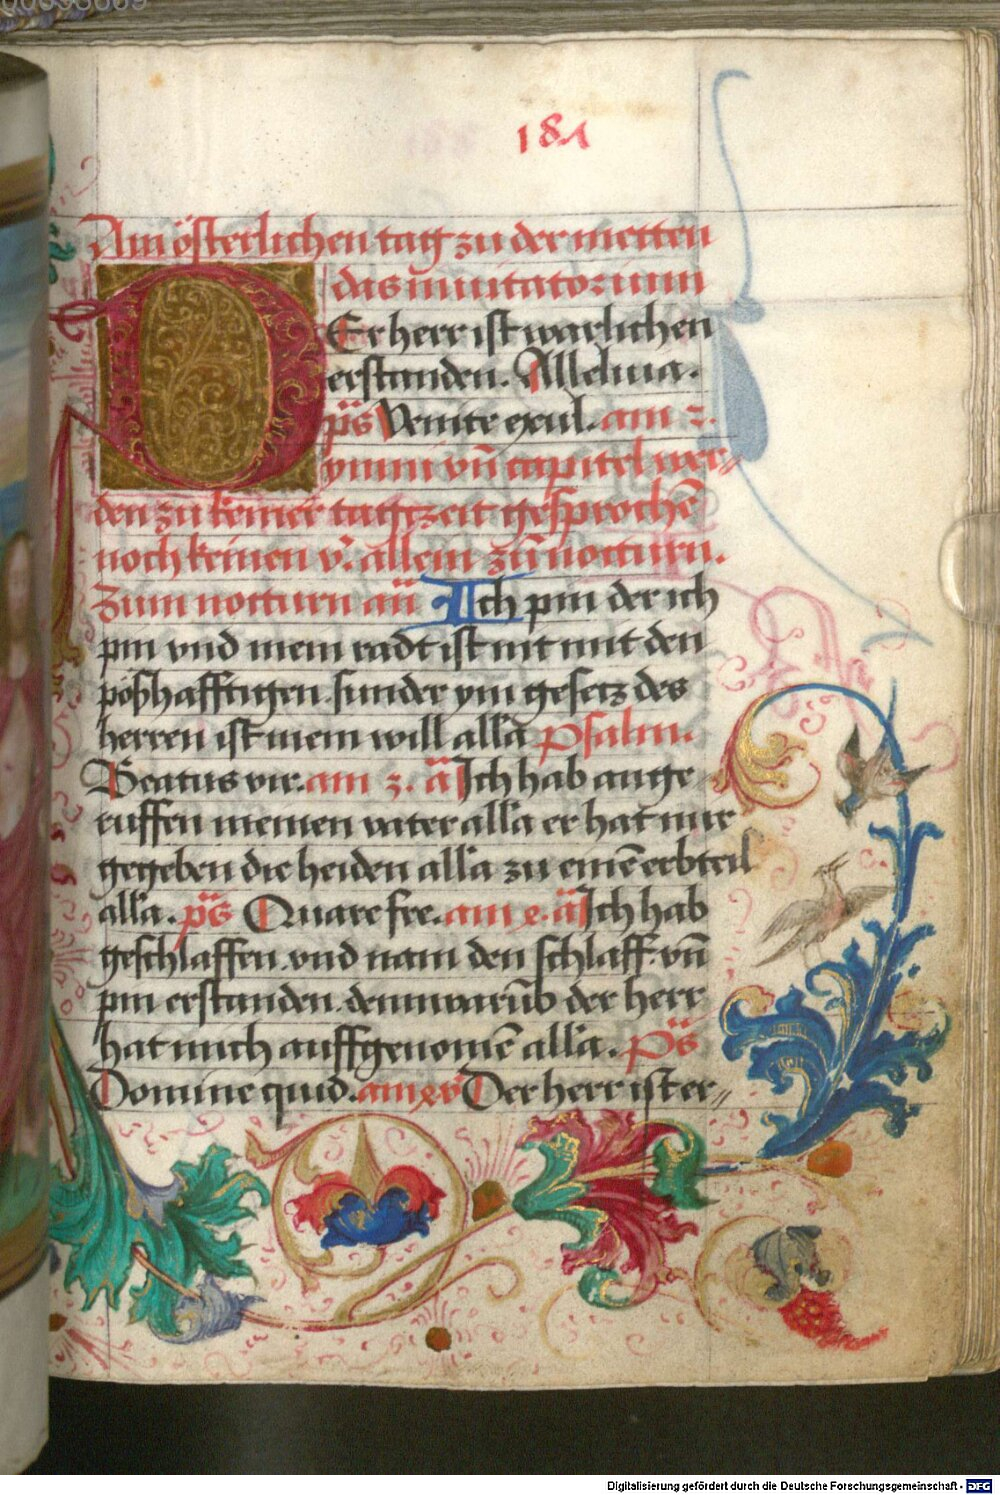 181
Am österlichen tag zu der metten
das inuitatorium
DEr herr ist warlichen
erstanden. Alleluia.
p̄s Venite exul. am 2.
ymni vn̄ capitel wer⸗
den zu keiner tagtzeit gesprochē
noch keinen v̓. allein zū notturn.
Zum notturn an̄ Ich pin der ich
pin vnd mein radt ist nit mit den
pößhafftigen. sunder ym gesetz des
herren ist mein will all'a Psalm.
Beatus vir. am 3. a̅ Ich hab ange
ruffen meinen vater all'a er hat mir
gegeben die heiden all'a zu einē erbteil
all'a. p̄s Quare fre. am e. a̅ Ich hab
geschlaffen. vnd nam den schlaff. vn̄
pin erstanden. dann warūb der herr
hat mich auffgenomē all'a. Ps̄
Domine quid. am Der herr ist er⸗
Digitalisierung gefördert durch die Deutsche Forschungsgemeinschaft - DFG